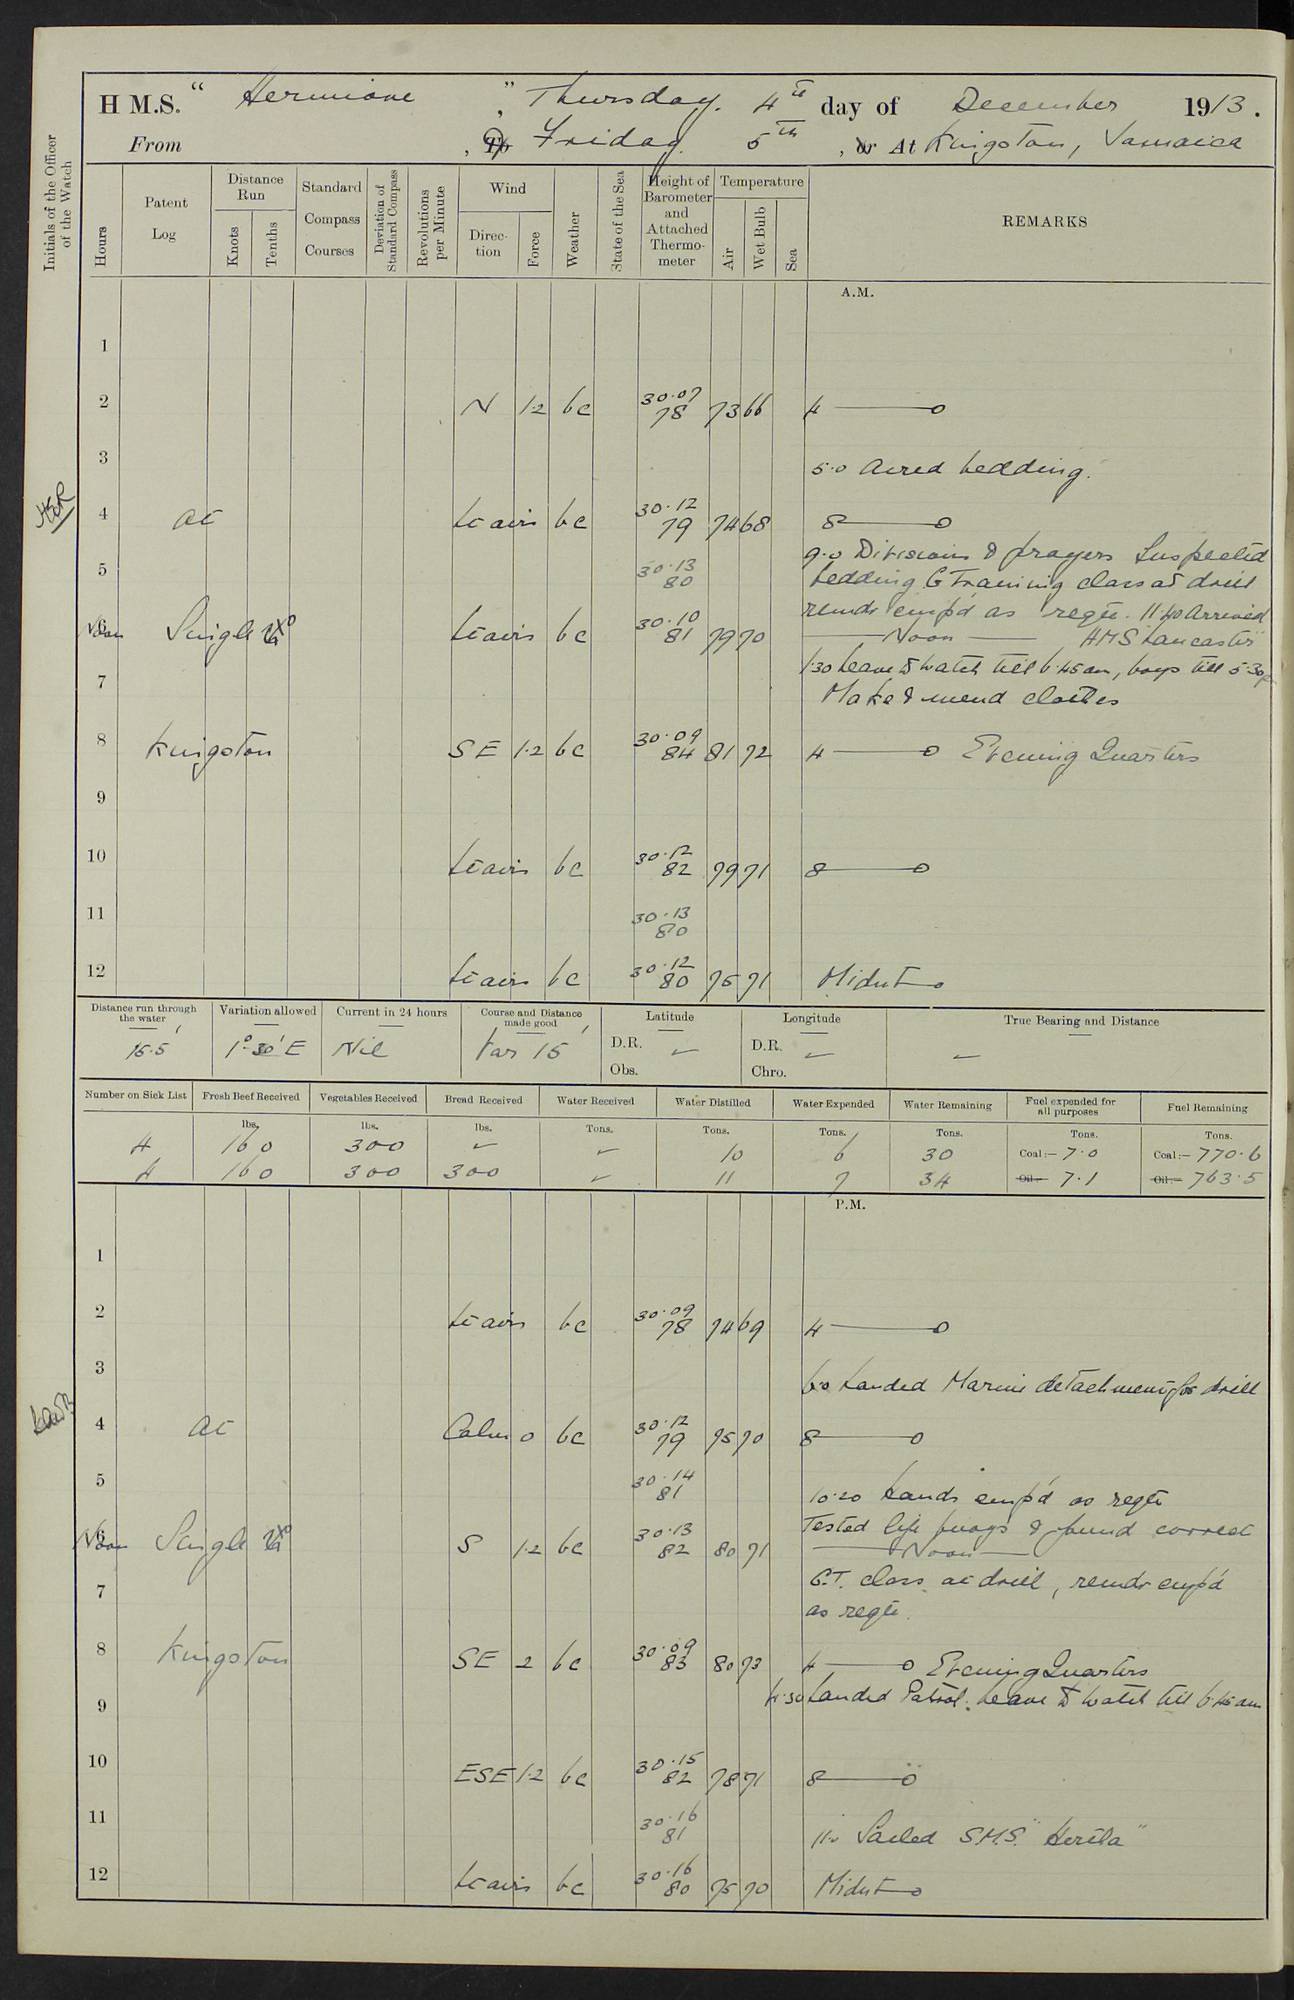 H M.S. " Hermione ", Thursday. 4th day of December 1913.
From , To Friday 5th , or At Kingston, Jamaica
Initials of the Officer of the Watch
Hours Patent Log Distance Run Knots Tenths Standard Compass Courses Deviation of Standard Compass Revolutions per Minute Wind Direction Force Weather State of the Sea Height of Barometer and Attached Thermometer Temperature Air Wet Bulb Sea REMARKS
A.M.
1
2 N 1·2 bc 30·07 78 73 66 4
3 5·0 Aired bedding.
4 at Lt airs bc 30·12 79 74 68 8
9·0 Divisions & prayers Inspected
5 30·13 80 bedding G Training class at drill
remdr emp'd as reqte. 11·40 Arrived
Noon 6 Single Lt airs bc 30·10 81 79 70 Noon HMS Lancaster
1·30 Leave to watch till 6·45 am, boys till 5·30
7 Make & mend clothes
8 Kingston SE 1·2 bc 30·09 84 81 72 4 Evening Quarters
9
10 Lt airs bc 30·12 82 79 71 8
11 30·13 80
12 Lt airs bc 30·12 80 75 71 Midnt
Distance run through the water Variation allowed Current in 24 hours Course and Distance made good Latitude Longitude True Bearing and Distance
15·5 1°30' E Nil Var 15' D.R. ✓ D.R. ✓ ✓
Obs. Chro.
Number on Sick List Fresh Beef Received Vegetables Received Bread Received Water Received Water Distilled Water Expended Water Remaining Fuel expended for all purposes Fuel Remaining
lbs. lbs. lbs. Tons. Tons. Tons. Tons. Tons. Tons.
4 160 300 ✓ ✓ 10 6 30 Coal:– 7·0 Coal:– 770·6
4 160 300 300 ✓ 11 7 34 Oil:– 7·1 Oil:– 763·5
P.M.
1
2 Lt airs bc 30·09 78 74 69 4
3 6·0 Landed Marine detachment for drill
4 at Calm 0 bc 30·12 79 75 70 8
5 30·14 81 10·20 Hands emp'd as reqte
Tested life buoys & found correct
Noon 6 Single S 1·2 bc 30·13 82 80 71 Noon
G.T. class at drill, remdr emp'd
7 as reqte.
8 Kingston SE 2 bc 30·09 83 80 73 4 Evening Quarters
4·30 Landed Patrol. Leave to watch till 6·45 am
9
10 ESE 1·2 bc 30·15 82 78 71 8
11 30·16 81 11·0 Sailed S.M.S. "Hertha"
12 Lt airs bc 30·16 80 75 70 Midnt